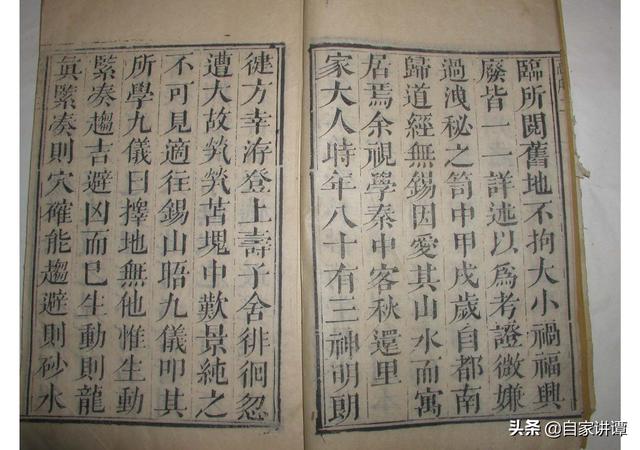 臨所閱舊地不拘大小禍福興
廢皆一一詳述以爲考證微嫌
過洩秘之笥中甲戌歲自都南
歸道經無錫因愛其山水而寓
居焉余視學秦中客秋還里
家大人時年八十有三神明朗
徤方幸游登上壽子舍徘徊忽
遭大故煢煢苦塊中歎景純之
不可見適往錫山晤九儀叩其
所學九儀曰擇地無他惟生動
緊奏趨吉避凶而巳生動則龍
眞緊奏則穴確能趨避則砂水
头条@自家讲谭